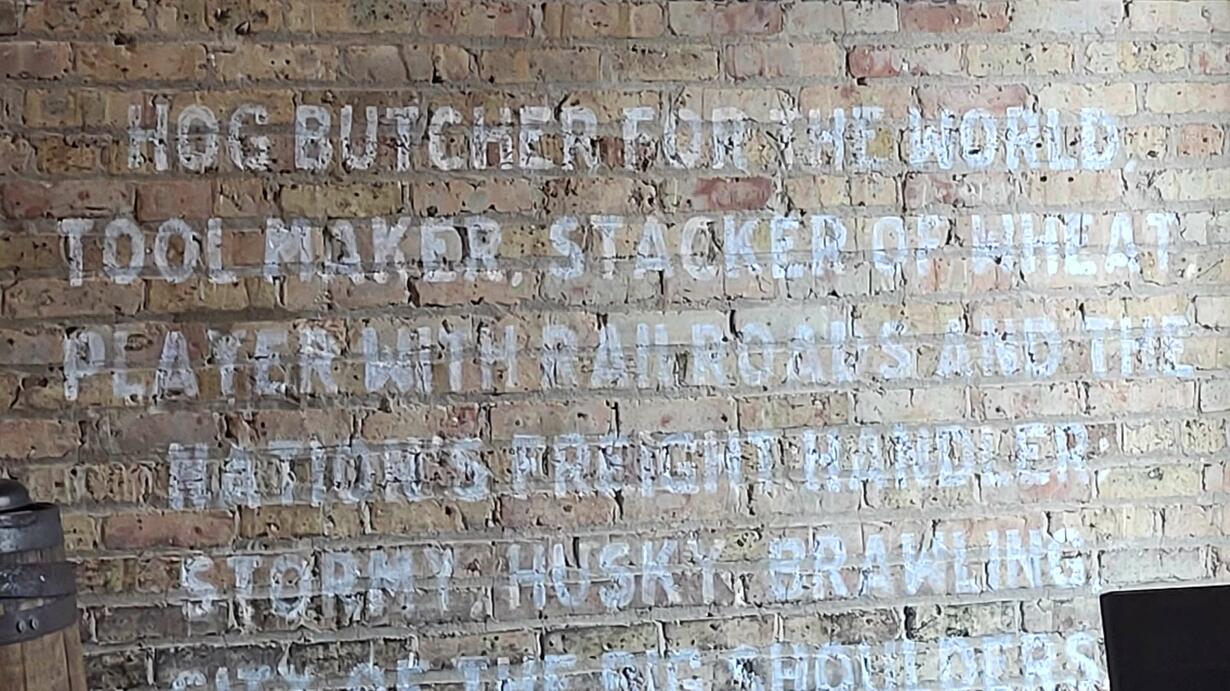 HOG BUTCHER FOR THE WORLD,
TOOL MAKER, STACKER OF WHEAT,
PLAYER WITH RAILROADS AND THE
NATION'S FREIGHT HANDLER;
STORMY, HUSKY, BRAWLING
CITY OF THE BIG SHOULDERS